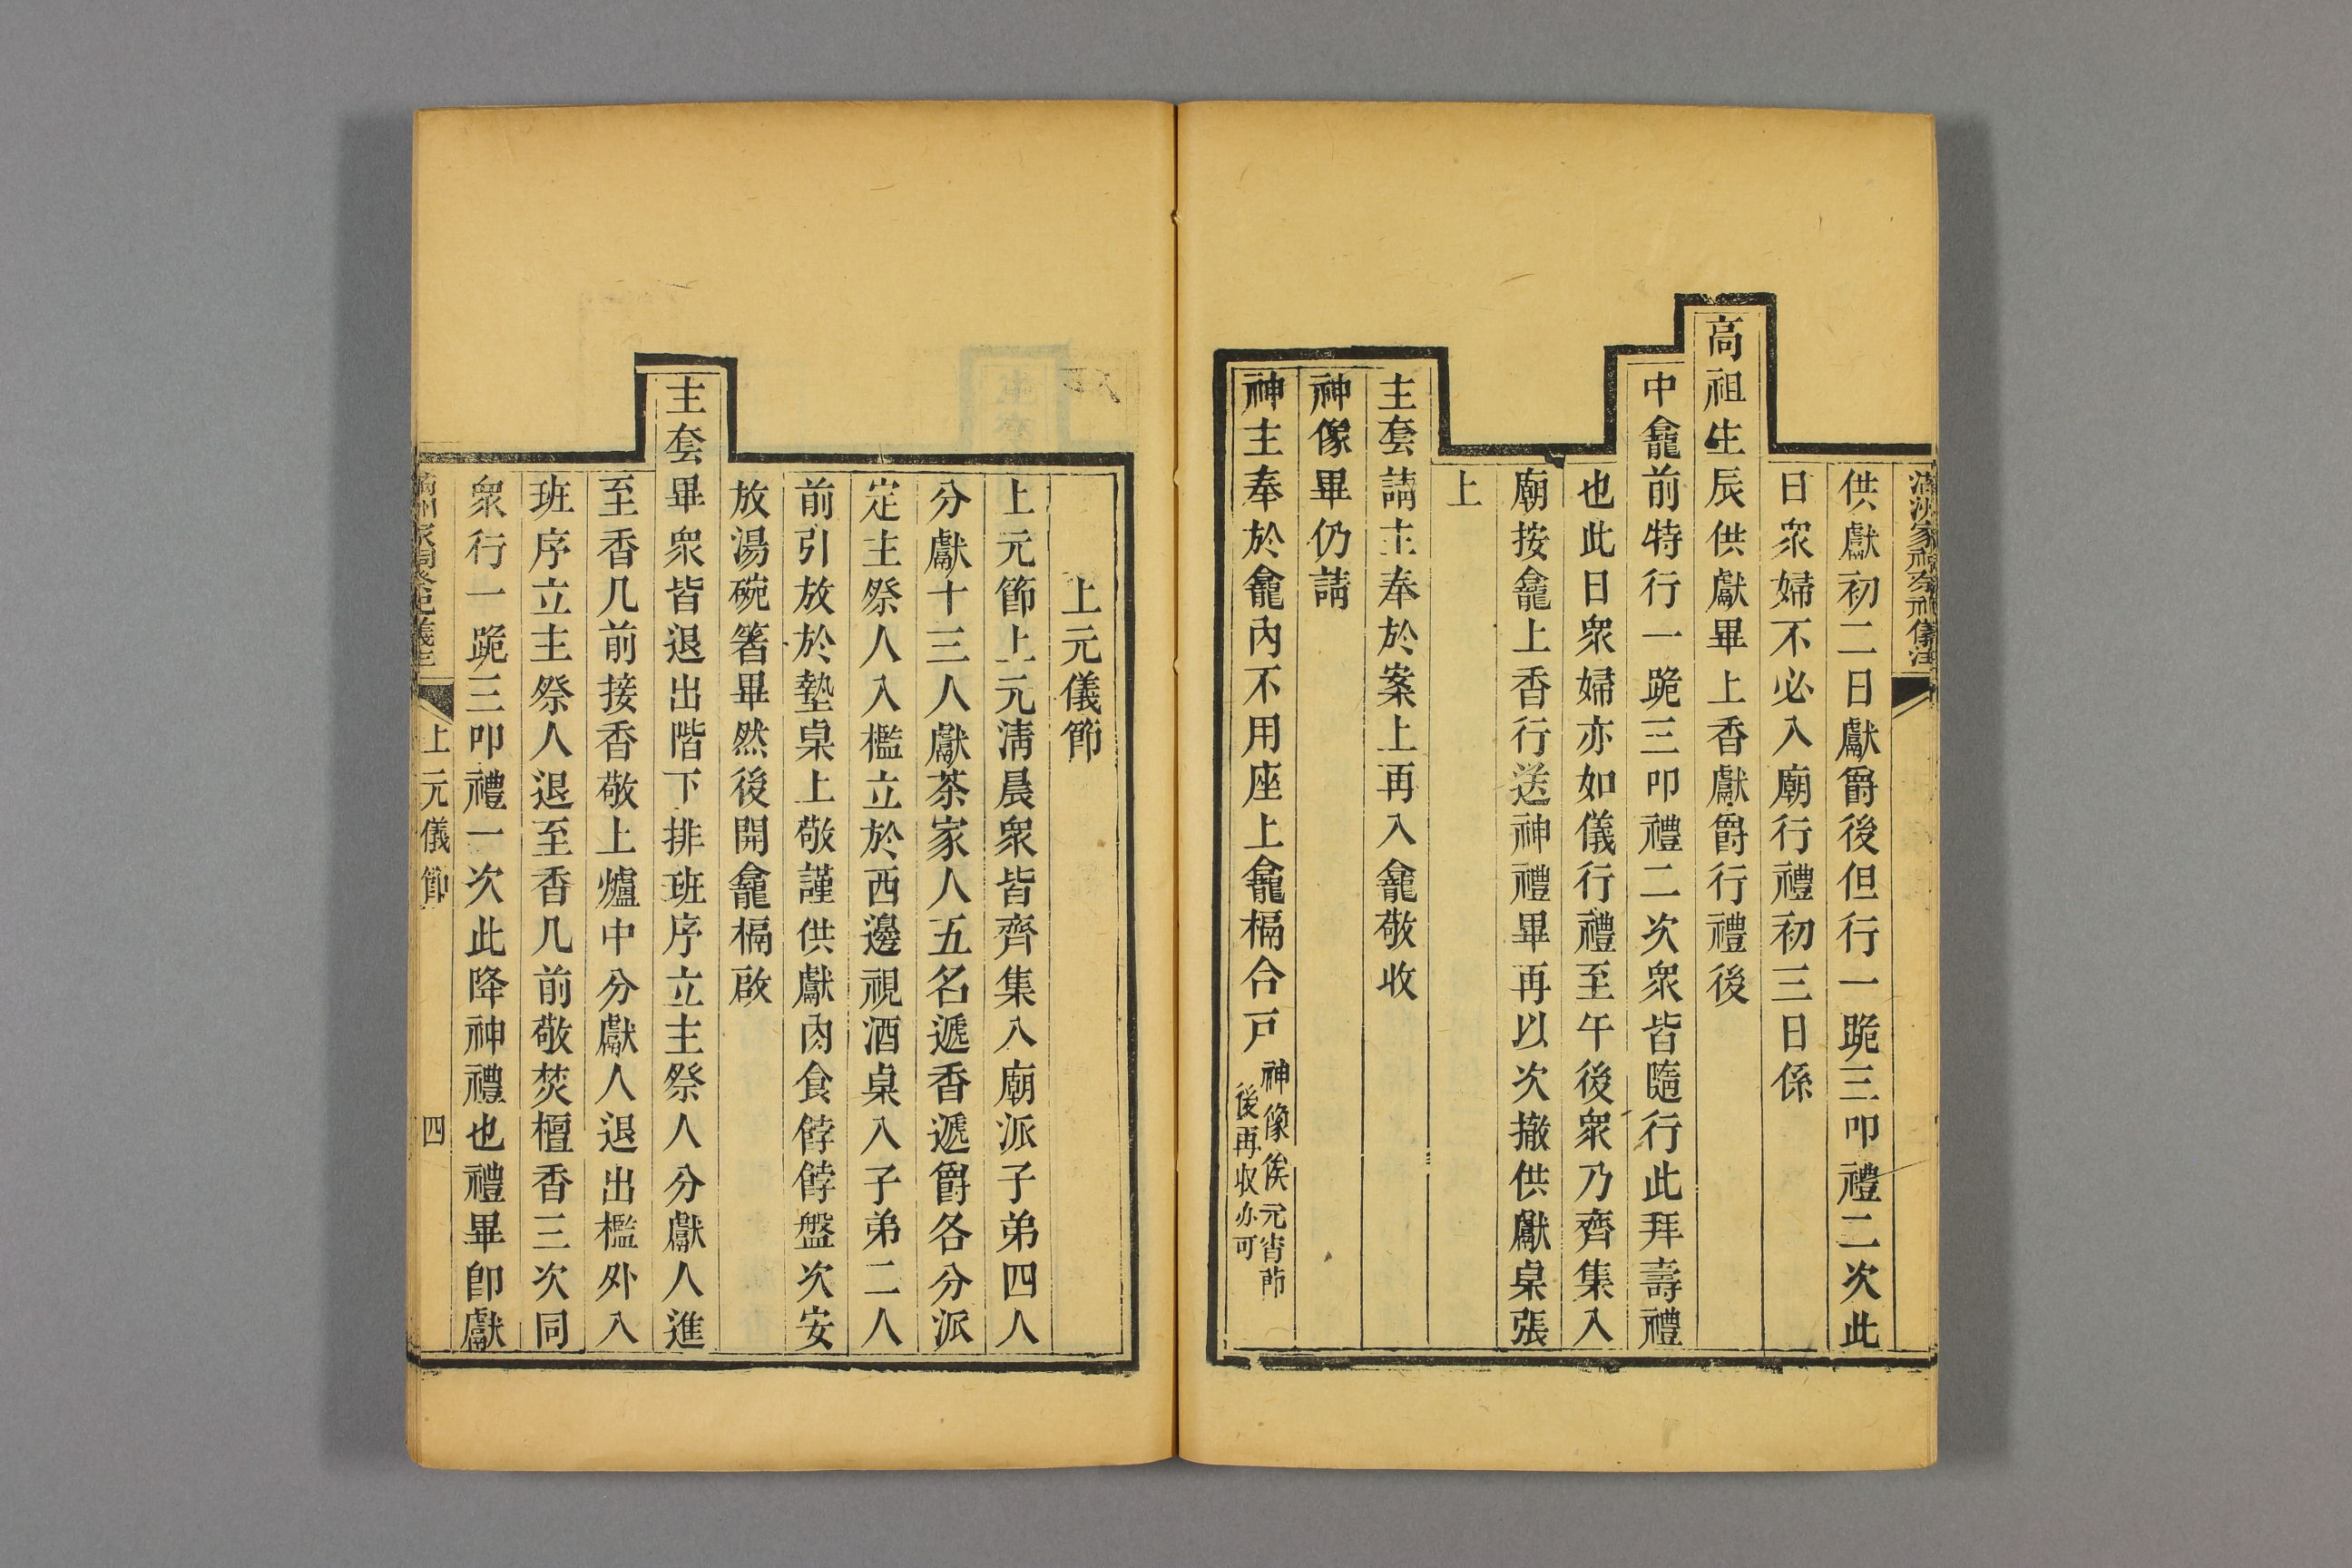 滿洲家祠祭祀儀注
供獻初二日獻爵後但行一跪三叩禮二次此
日衆婦不必入廟行禮初三日係
高祖生辰供獻畢上香獻爵行禮後
中龕前特行一跪三叩禮二次衆皆隨行此拜壽禮
也此日衆婦亦如儀行禮至午後衆乃齊集入
廟按龕上香行送神禮畢再以次撤供獻桌張
上
主套請主奉於案上再入龕敬收
神像畢仍請
神主奉於龕內不用座上龕槅合戸
神像俟元宵節
後再收亦可
上元儀節
上元節上元淸晨衆皆齊集入廟派子弟四人
分獻十三人獻茶家人五名遞香遞爵各分派
定主祭人入檻立於西邊視酒桌入子弟二人
前引放於墊桌上敬謹供獻肉食餑餑盤次安
放湯碗箸畢然後開龕槅啟
主套畢衆皆退出階下排班序立主祭人分獻人進
至香几前接香敬上爐中分獻人退出檻外入
班序立主祭人退至香几前敬焚檀香三次同
衆行一跪三叩禮一次此降神禮也禮畢卽獻
滿洲家祠祭祀儀注
上元儀節
四